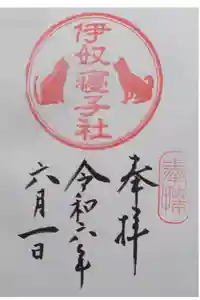 伊奴寝子社
奉拝
令和六年
六月一日